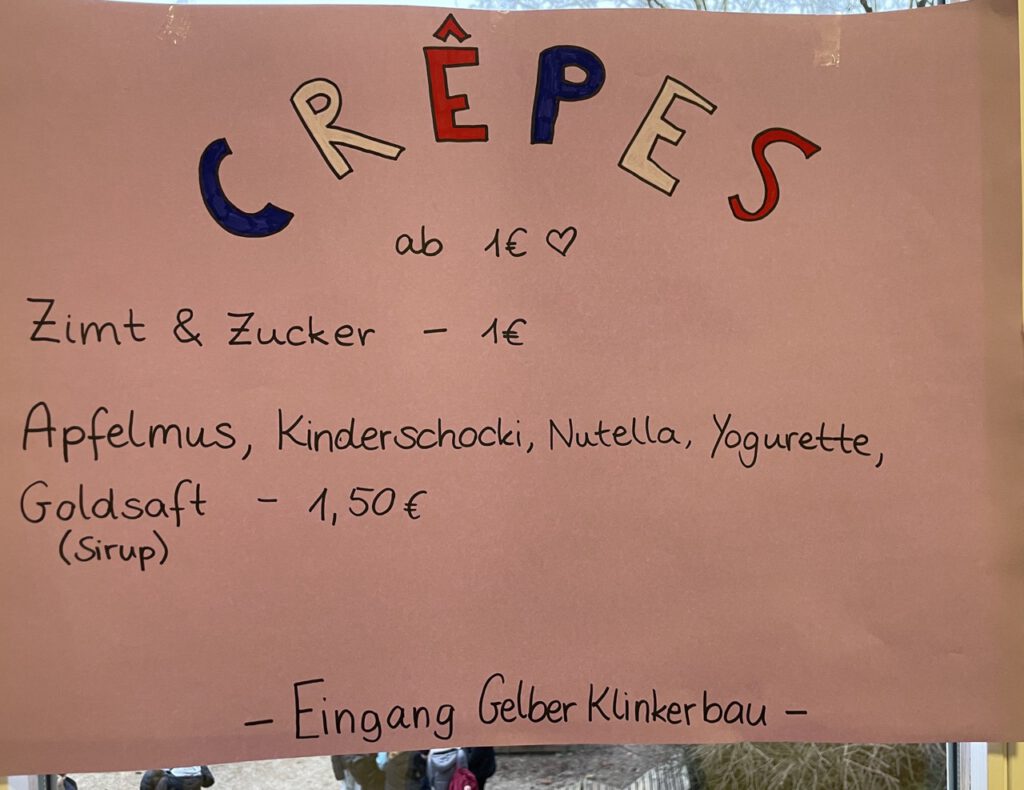 CRÊPES
ab 1€ ♡
Zimt & Zucker - 1€
Apfelmus, Kinderschocki, Nutella, Yogurette,
Goldsaft - 1,50€
(Sirup)
- Eingang Gelber Klinkerbau -